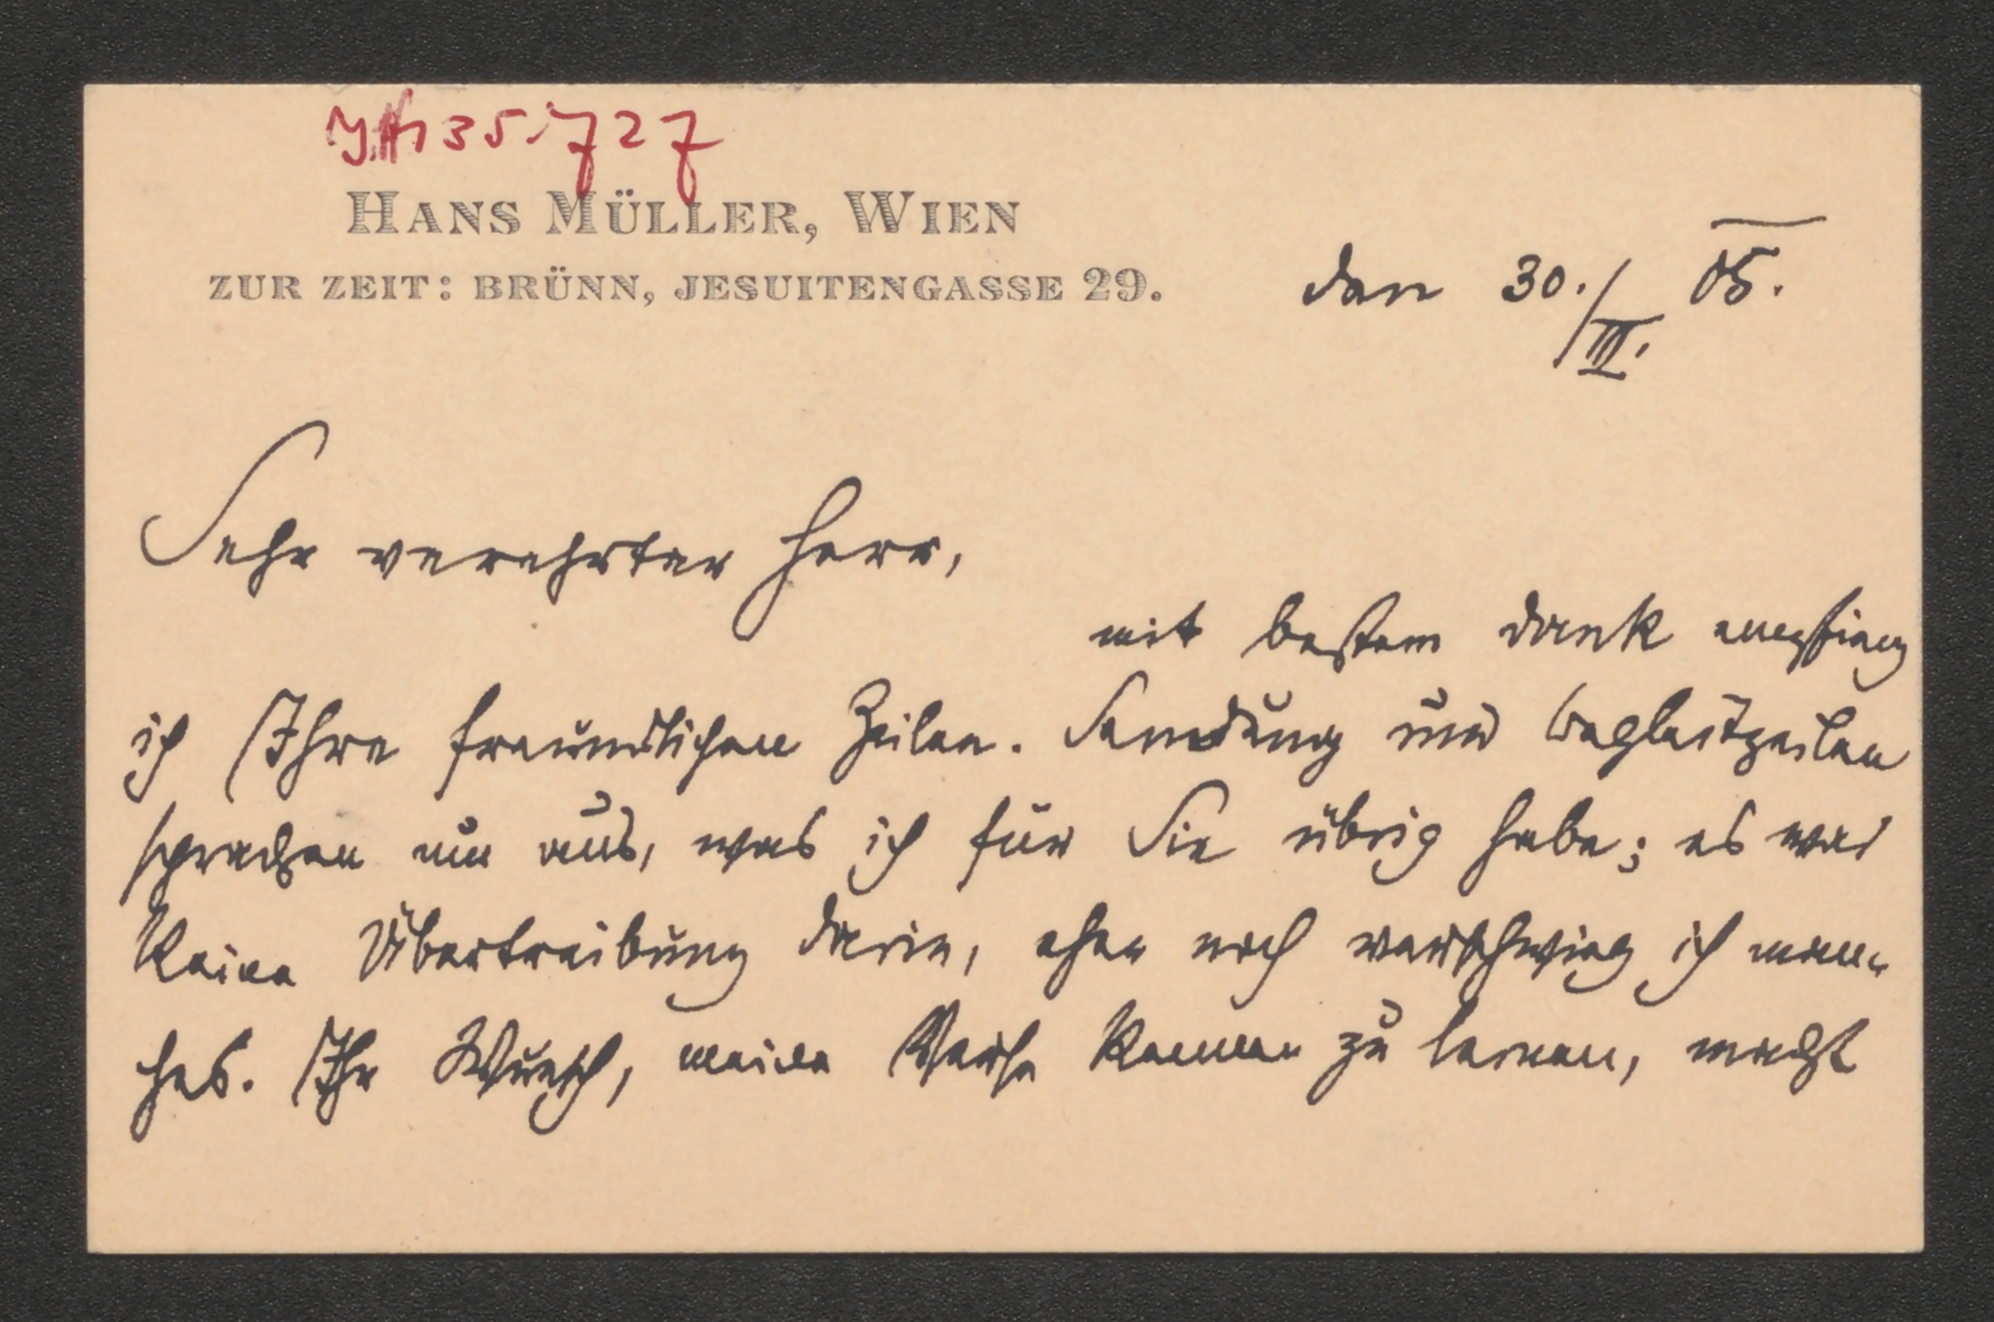 35.727
HANS MÜLLER, WIEN
ZUR ZEIT: BRÜNN, JESUITENGASSE 29.
den 30./III. 05.
Sehr verehrter Herr,
mit bestem Dank empfing
ich Ihre freundlichen Zeilen. Sendung und Begleitzeilen
sprachen nur aus, was ich für Sie übrig habe; es war
keine Übertreibung darin, eher noch verschwieg ich man-
ches. Ihr Wunsch, meine Verse kennen zu lernen, macht